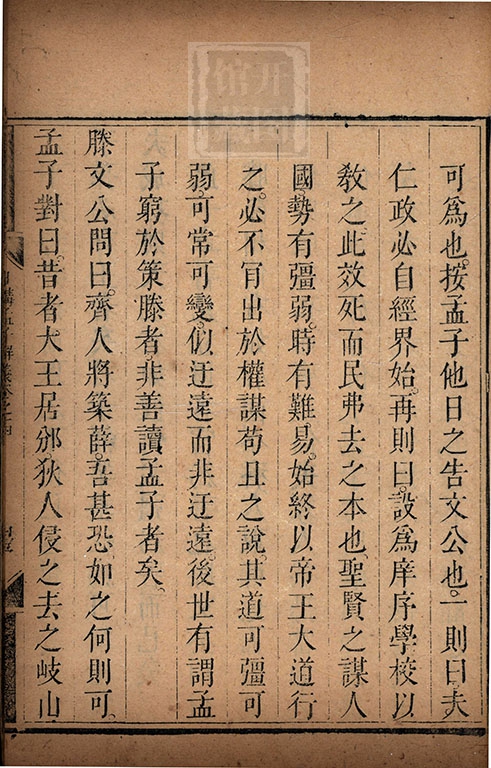 可爲也按孟子他日之告文公也一則曰夫
仁政必自經界始再則曰設爲庠序學校以
敎之此效死而民弗去之本也聖賢之謀人
國勢有彊弱時有難易始終以帝王大道行
之必不肎出於權謀苟且之說其道可彊可
弱可常可變似迂遠而非迂遠後世有謂孟
子窮於策滕者非善讀孟子者矣
滕文公問曰齊人將築薛吾甚恐如之何則可
孟子對曰昔者大王居邠狄人侵之去之岐山